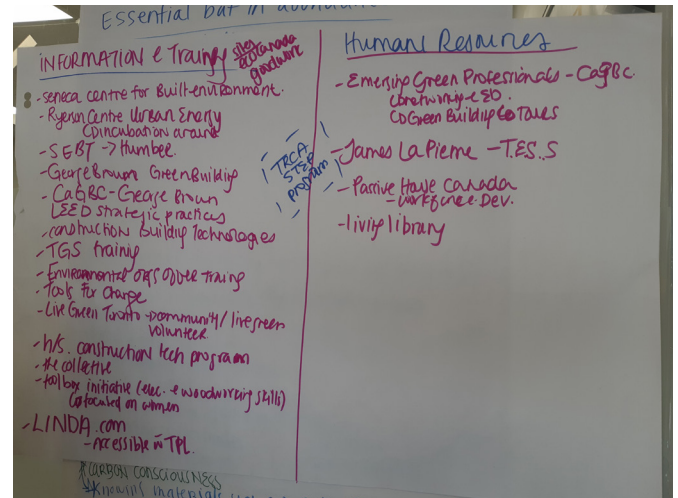 Essential but in abundance
INFORMATION & Training
sites
eco canada
goodwork
- Seneca Centre for Built-environment.
- Ryerson Centre Urban Energy
incubation around
- SEBT -> Humber.
- George Brown Green Building
- CaGBC - George Brown
LEED strategic practices
- construction Building Technologies
- TGS training
- Environmental orgs offer training
- Tools for Change
- Live Green Toronto - community/livegreen
volunteer
- h/s. construction tech program
- the collective
- toolbox initiative (elec. & woodworking skills)
focused on women
- LINDA.com
- Accessible in TPL.
TRCA
STEP
program
Human Resources
- Emerging Green Professionals - CaGBC.
networking - EO
Green Building Tours
- James LaPierre - T.E.S.S
- Passive House Canada
- workforce Dev.
- living library
*CARBON CONSCIOUSNESS
materials